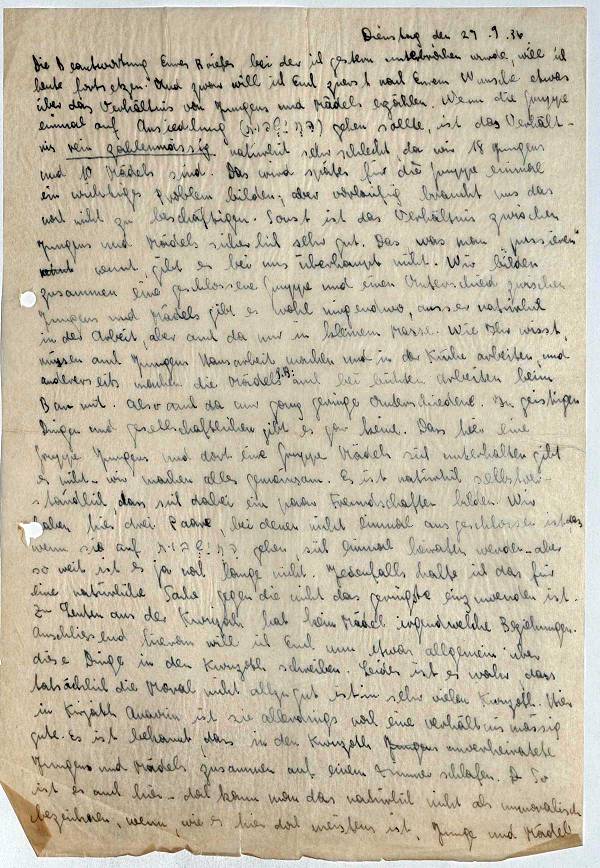 Dienstag den 29.9.36
Die Beantwortung Eures Briefes bei der ich gestern unterbrochen wurde, will ich
heute fortsetzen. Und zwar will ich Euch zuerst nach Eurem Wunsche etwas
über das Verhältnis von Jungens und Mädels erzählen. Wenn die Gruppe
einmal auf Ansiedlung gehen sollte, ist das Verhält-
nis rein zahlenmässig natürlich sehr schlecht, da wir 18 Jungens
und 10 Mädels sind. Das wird später für die Gruppe einmal
ein wichtiges Problem bilden, aber vorläufig braucht uns das
noch nicht zu beschäftigen. Sonst ist das Verhältnis zwischen
Jungens und Mädels sicherlich sehr gut. Das was man "pussieren"
nennt, gibt es bei uns überhaupt nicht. Wir bilden
zusammen eine geschlossene Gruppe und einen Unterschied zwischen
Jungens und Mädels gibt es wohl nirgendwo, ausser natürlich
in der Arbeit, aber auch da nur in kleinem Masse. Wie Ihr wisst,
müssen auch Jungens Hausarbeit machen und in der Küche arbeiten, und
andererseits machen die Mädels z.B. auch bei leichten Arbeiten beim
Bau mit. Also auch da nur ganz geringe Unterschiede. In geistigen
Dingen und gesellschaftlichen gibt es gar keine. Dass hier eine
Gruppe Jungens und dort eine Gruppe Mädels sich unterhalten gibt
es nicht - wir machen alles gemeinsam. Es ist natürlich selbstver-
ständlich dass sich dabei ein paar Freundschaften bilden. Wir
haben hier drei Paare, bei denen nicht einmal ausgeschlossen ist, dass
wenn sie auf gehen, sich einmal heiraten werden - aber
so weit ist es ja noch lange nicht. Jedenfalls halte ich das für
eine natürliche Sache gegen die nicht das geringste einzuwenden ist.
Zu Leuten aus der Kwuzoth hat kein Mädel irgendwelche Beziehungen.
Anschliessend hieran will ich Euch nun etwas allgemein über
diese Dinge in den Kwuzoth schreiben. Leider ist es wahr dass
tatsächlich die Moral nicht allzu gut ist in sehr vielen Kwuzoth. Hier
in Kirjath Anavim ist sie allerdings noch eine verhältnismässig
gute. Es ist bekannt, dass in den Kwuzoth unverheiratete
Jungens und Mädels zusammen auf einem Zimmer schlafen. So
ist es auch hier - doch kann man das natürlich nicht als unmoralisch
bezeichnen, wenn, wie es hier dort meistens ist, Junge und Mädel